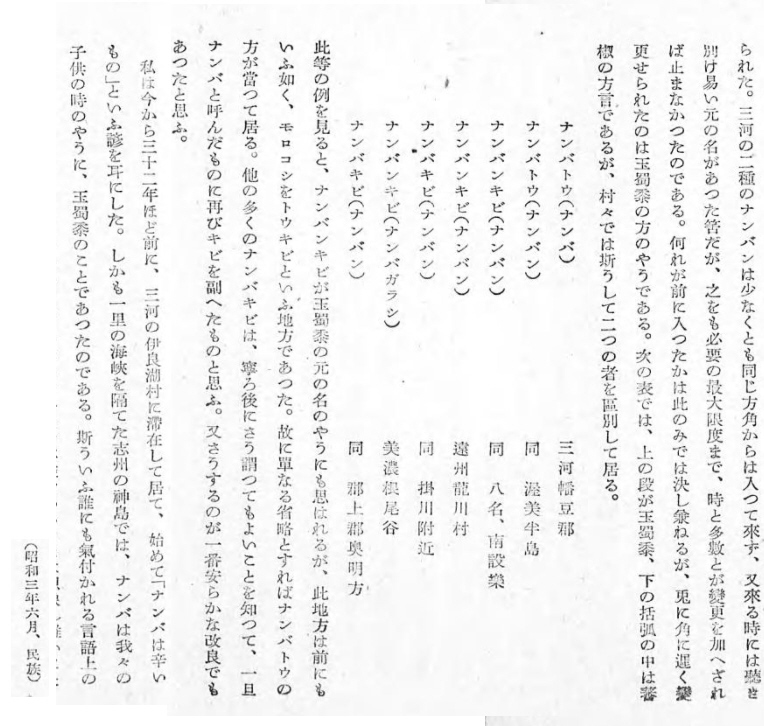 られた。三河の二種のナンバンは少なくとも同じ方角からは入つて來ず、又來る時には聽き
別け易い元の名があつた筈だが、之をも必要の最大限度まで、時と多數とが變更を加へされ
ば止まなかつたのである。何れが前に入つたかは此のみでは決し兼ねるが、兎に角に遲く變
更せられたのは玉蜀黍の方のやうである。次の表では、上の段が玉蜀黍、下の括弧の中は蕃
椒の方言であるが、村々では斯うして二つの者を區別して居る。
ナンバトウ(ナンバ) 三河幡豆郡
ナンバトウ(ナンバン) 同 渥美半島
ナンバンキビ(ナンバン) 同 八名、南設樂
ナンバンキビ(ナンバン) 遠州龍川村
ナンバキビ(ナンバン) 同 掛川附近
ナンバンキビ(ナンバガラシ) 美濃根尾谷
ナンバキビ(ナンバン) 同 郡上郡奧明方
此等の例を見ると、ナンバンキビが玉蜀黍の元の名のやうにも思はれるが、此地方は前にも
いふ如く、モロコシをトウキビといふ地方であつた。故に單なる省略とすればナンバトウの
方が當つて居る。他の多くのナンバキビは、寧ろ後にさう謂つてもよいことを知つて、一旦
ナンバと呼んだものに再びキビを副へたものと思ふ。又さうするのが一番安らかな改良でも
あつたと思ふ。
私は今から三十二年ほど前に、三河の伊良湖村に滯在して居て、始めて「ナンバは辛い
もの」といふ諺を耳にした。しかも一里の海峽を隔てた志州の神島では、ナンバは我々の
子供の時のやうに、玉蜀黍のことであつたのである。斯ういふ誰にも氣付かれる言語上の
(昭和三年六月、民族)